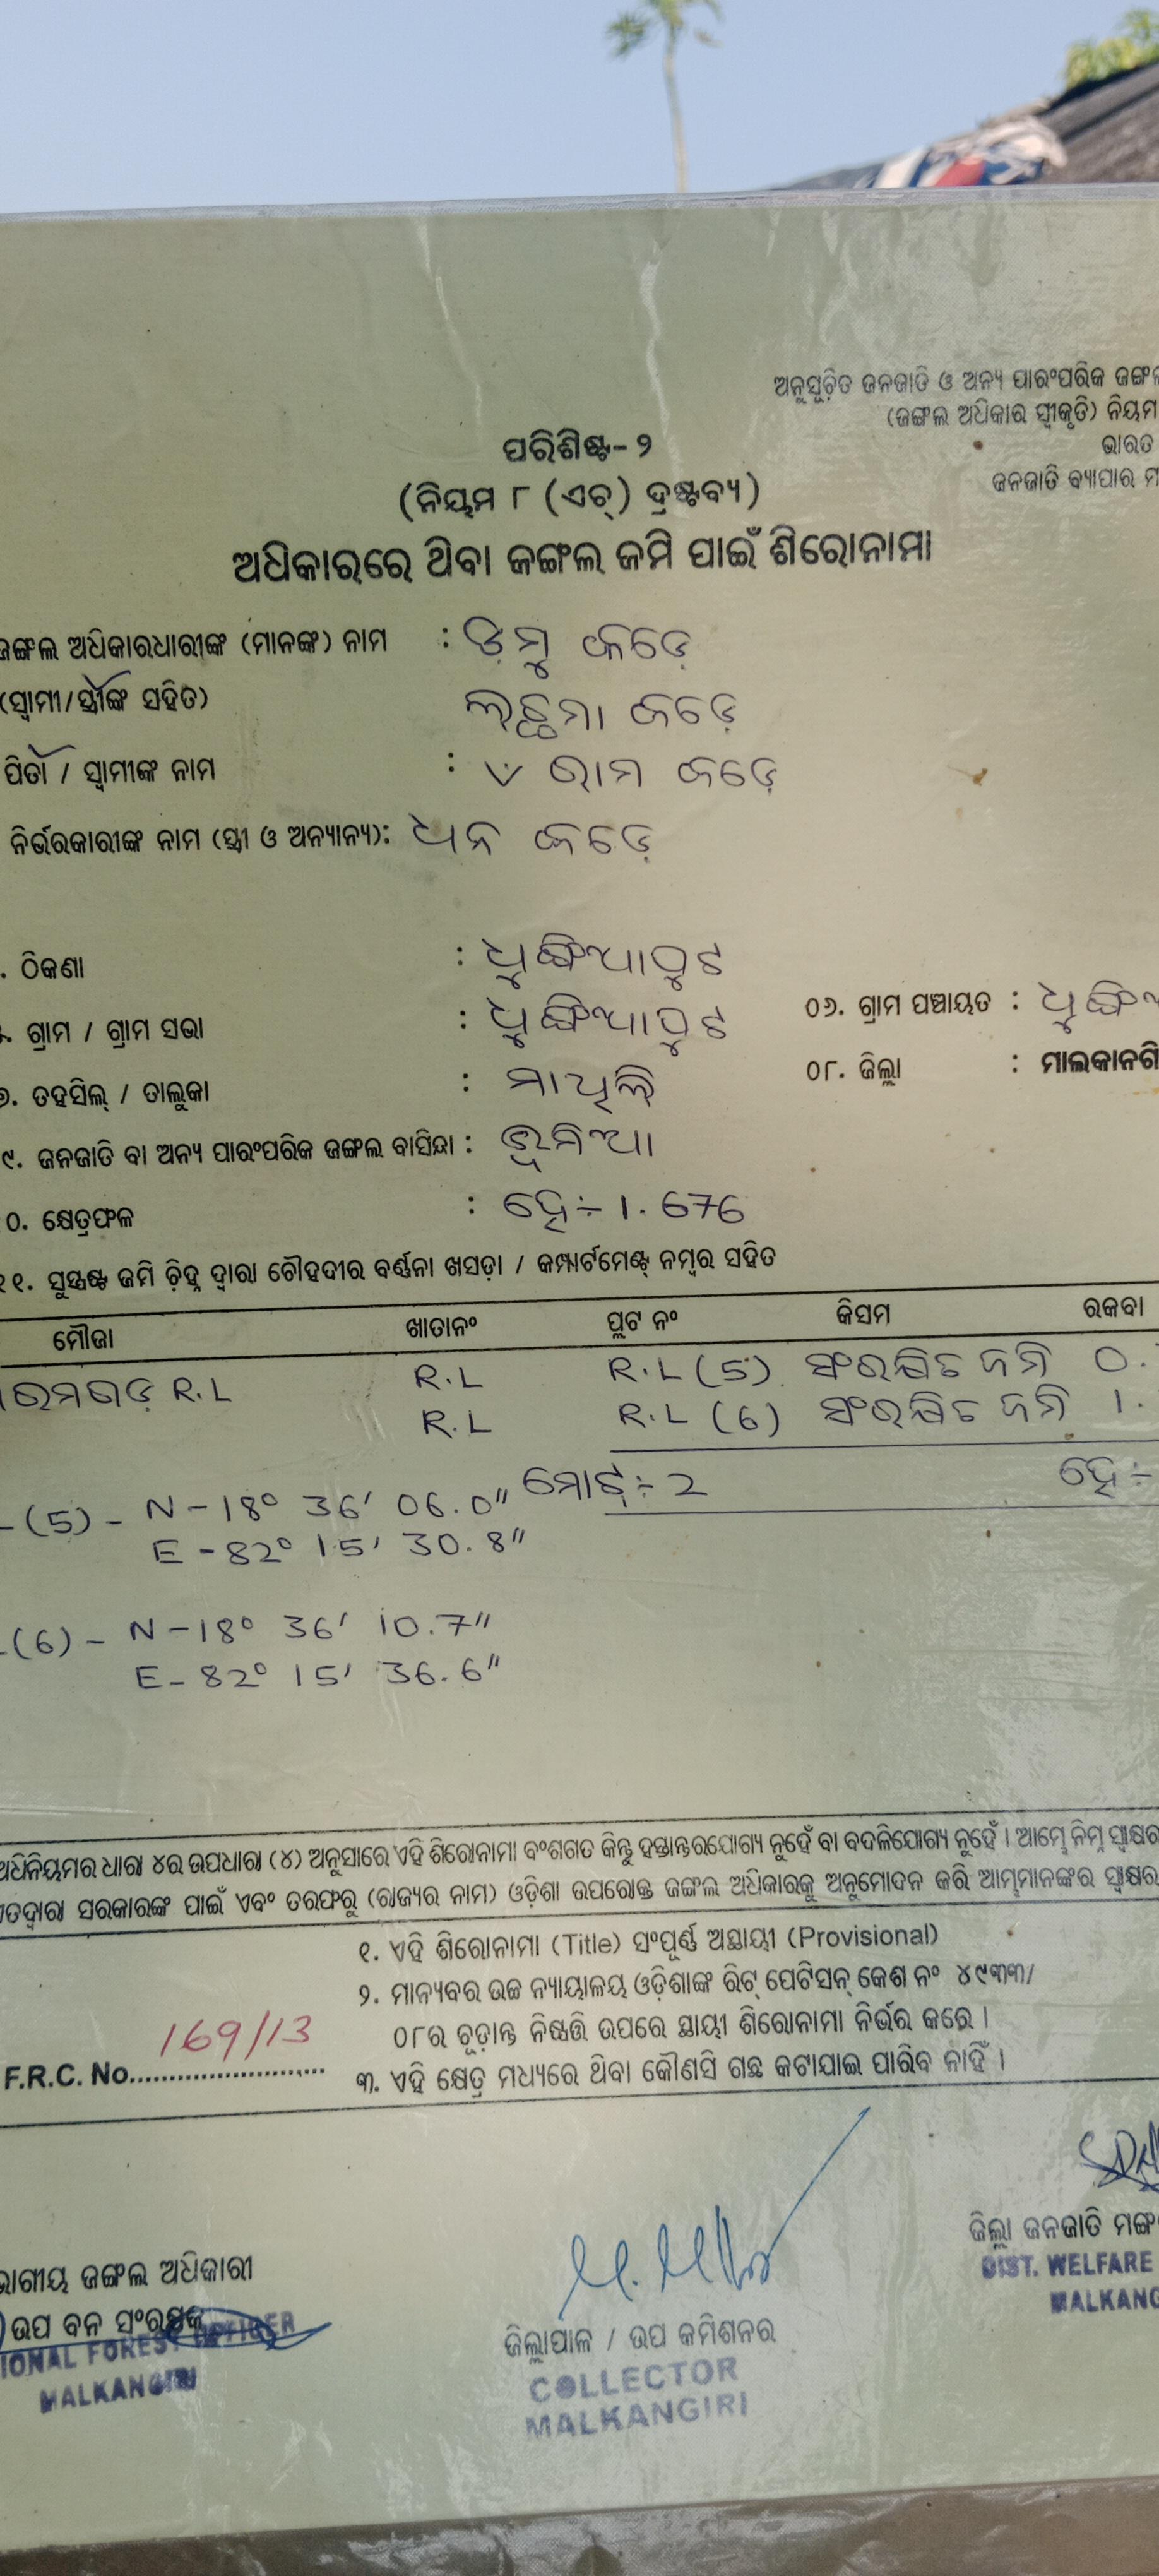 ଅନୁସୂଚିତ ଜନଜାତି ଓ ଅନ୍ୟ ପାରଂପରିକ
(ଜଙ୍ଗଲ ଅଧିକାର ସ୍ୱୀକୃତି) ନିୟମ
ଭାରତ
ଜନଜାତି ବ୍ୟାପାର
ପରିଶିଷ୍ଟ-୨
(ନିୟମ ୮ (ଏଚ୍) ଦ୍ରଷ୍ଟବ୍ୟ)
ଅଧିକାରରେ ଥିବା ଜଙ୍ଗଲ ଜମି ପାଇଁ ଶିରୋନାମା
ଜଙ୍ଗଲ ଅଧିକାରଧାରୀଙ୍କ (ମାନଙ୍କ) ନାମ : ଡ଼ମୁ କଡେ଼
(ସ୍ୱାମୀ/ସ୍ତ୍ରୀଙ୍କ ସହିତ) ଲଛମା କଡେ଼
ପିତା / ସ୍ୱାମୀଙ୍କ ନାମ : ରାମ କଡେ଼
ନିର୍ଭରକାରୀଙ୍କ ନାମ (ସ୍ତ୍ରୀ ଓ ଅନ୍ୟାନ୍ୟ): ଧନ କଡେ଼
. ଠିକଣା :
ଗ୍ରାମ / ଗ୍ରାମ ସଭା : ୦୬. ଗ୍ରାମ ପଞ୍ଚାୟତ :
ତହସିଲ୍ / ତାଲୁକା : ମାଥିଲି ୦୮. ଜିଲ୍ଲା : ମାଲକାନଗି
୯. ଜନଜାତି ବା ଅନ୍ୟ ପାରଂପରିକ ଜଙ୍ଗଲ ବାସିନ୍ଦା : ଭୂମିଆ
୦. କ୍ଷେତ୍ରଫଳ : ହେ÷ 1.676
୧୧. ସୁସ୍ପଷ୍ଟ ଜମି ଚିହ୍ନ ଦ୍ୱାରା ଚୌହଦୀର ବର୍ଣ୍ଣନା ଖସଡ଼ା / କମ୍ପାର୍ଟମେଣ୍ଟ୍ ନମ୍ବର ସହିତ
ମୌଜା ଖାତାନଂ ପ୍ଲଟ ନଂ କିସମ ରକବା
R.L R.L R.L (5) ସଂରକ୍ଷିତ ଜମି 0.
R.L R.L (6) ସଂରକ୍ଷିତ ଜମି 1.
ମୋଟ୍÷ 2 ହେ÷
-(5) - N-18° 36' 06.0"
E-82° 15' 30.8"
-(6) - N-18° 36' 10.7"
E-82° 15' 36.6"
ଅଧିନିୟମର ଧାରା ୪ର ଉପଧାରା (୪) ଅନୁସାରେ ଏହି ଶିରୋନାମା ବଂଶଗତ କିନ୍ତୁ ହସ୍ତାନ୍ତରଯୋଗ୍ୟ ନୁହେଁ ବା ବଦଳିଯୋଗ୍ୟ ନୁହେଁ । ଆମ୍ଭେ ନିମ୍ନ ସ୍ୱାକ୍ଷର
ଏତଦ୍ଦ୍ୱାରା ସରକାରଙ୍କ ପାଇଁ ଏବଂ ତରଫରୁ (ରାଜ୍ୟର ନାମ) ଓଡ଼ିଶା ଉପରୋକ୍ତ ଜଙ୍ଗଲ ଅଧିକାରକୁ ଅନୁମୋଦନ କରି ଆମ୍ଭମାନଙ୍କର ସ୍ୱାକ୍ଷର
୧. ଏହି ଶିରୋନାମା (Title) ସଂପୂର୍ଣ୍ଣ ଅସ୍ଥାୟୀ (Provisional)
୨. ମାନ୍ୟବର ଉଚ୍ଚ ନ୍ୟାୟାଳୟ ଓଡ଼ିଶାଙ୍କ ରିଟ୍ ପେଟିସନ୍ କେଶ ନଂ ୪୯୩୩/
୦୮ର ଚୂଡ଼ାନ୍ତ ନିଷ୍ପତ୍ତି ଉପରେ ସ୍ଥାୟୀ ଶିରୋନାମା ନିର୍ଭର କରେ ।
F.R.C. No. 169/13
୩. ଏହି କ୍ଷେତ୍ର ମଧ୍ୟରେ ଥିବା କୌଣସି ଗଛ କଟାଯାଇ ପାରିବ ନାହିଁ ।
ଭାଗୀୟ ଜଙ୍ଗଲ ଅଧିକାରୀ
ଉପ ବନ ସଂରକ୍ଷକ
IONAL FOREST OFFICER
MALKANGIRI
ଜିଲ୍ଲାପାଳ / ଉପ କମିଶନର
COLLECTOR
MALKANGIRI
ଜିଲ୍ଲା ଜନଜାତି ମଙ୍ଗ
DIST. WELFARE
MALKANG